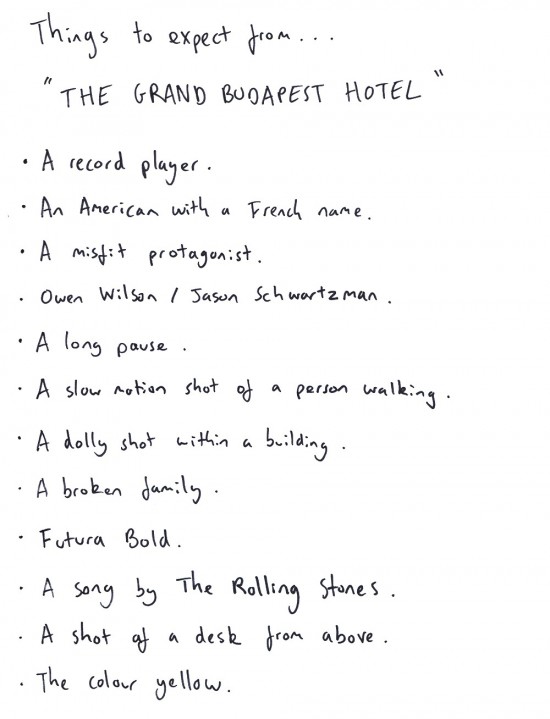 Things to expect from...
"THE GRAND BUDAPEST HOTEL"
· A record player.
· An American with a French name.
· A misfit protagonist.
· Owen Wilson / Jason Schwartzman.
· A long pause.
· A slow motion shot of a person walking.
· A dolly shot within a building.
· A broken family.
· Futura Bold.
· A song by The Rolling Stones.
· A shot of a desk from above.
· The colour yellow.